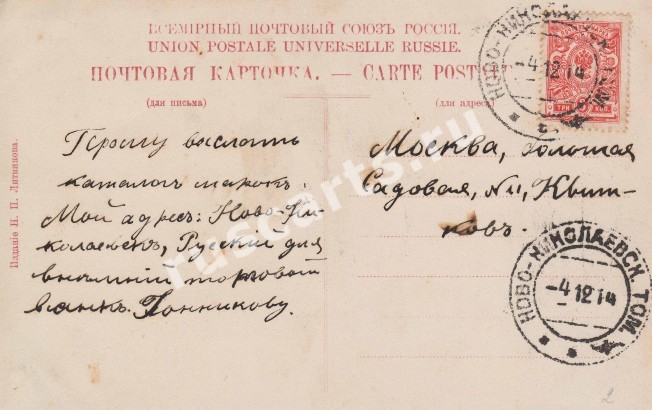 ВСЕМІРНЫЙ ПОЧТОВЫЙ СОЮЗЪ РОССІЯ.
UNION POSTALE UNIVERSELLE RUSSIE.
ПОЧТОВАЯ КАРТОЧКА. — CARTE POSTALE
(для письма)
(для адреса)
Прошу выслать
каталог марокъ.
Мой адресъ: Ново-Ни-
колаевскъ, Русский для
внѣшней торговли
банкъ.
Москва, Большая
Садовая, №11,
ковъ.
НОВО-НИКОЛАЕВСК. ТОМ.
-4 12 14
НОВО-НИКОЛАЕВСК. ТОМ.
-4 12 14
Изданіе Н. П. Литвинова.
ruscarts.ru
2